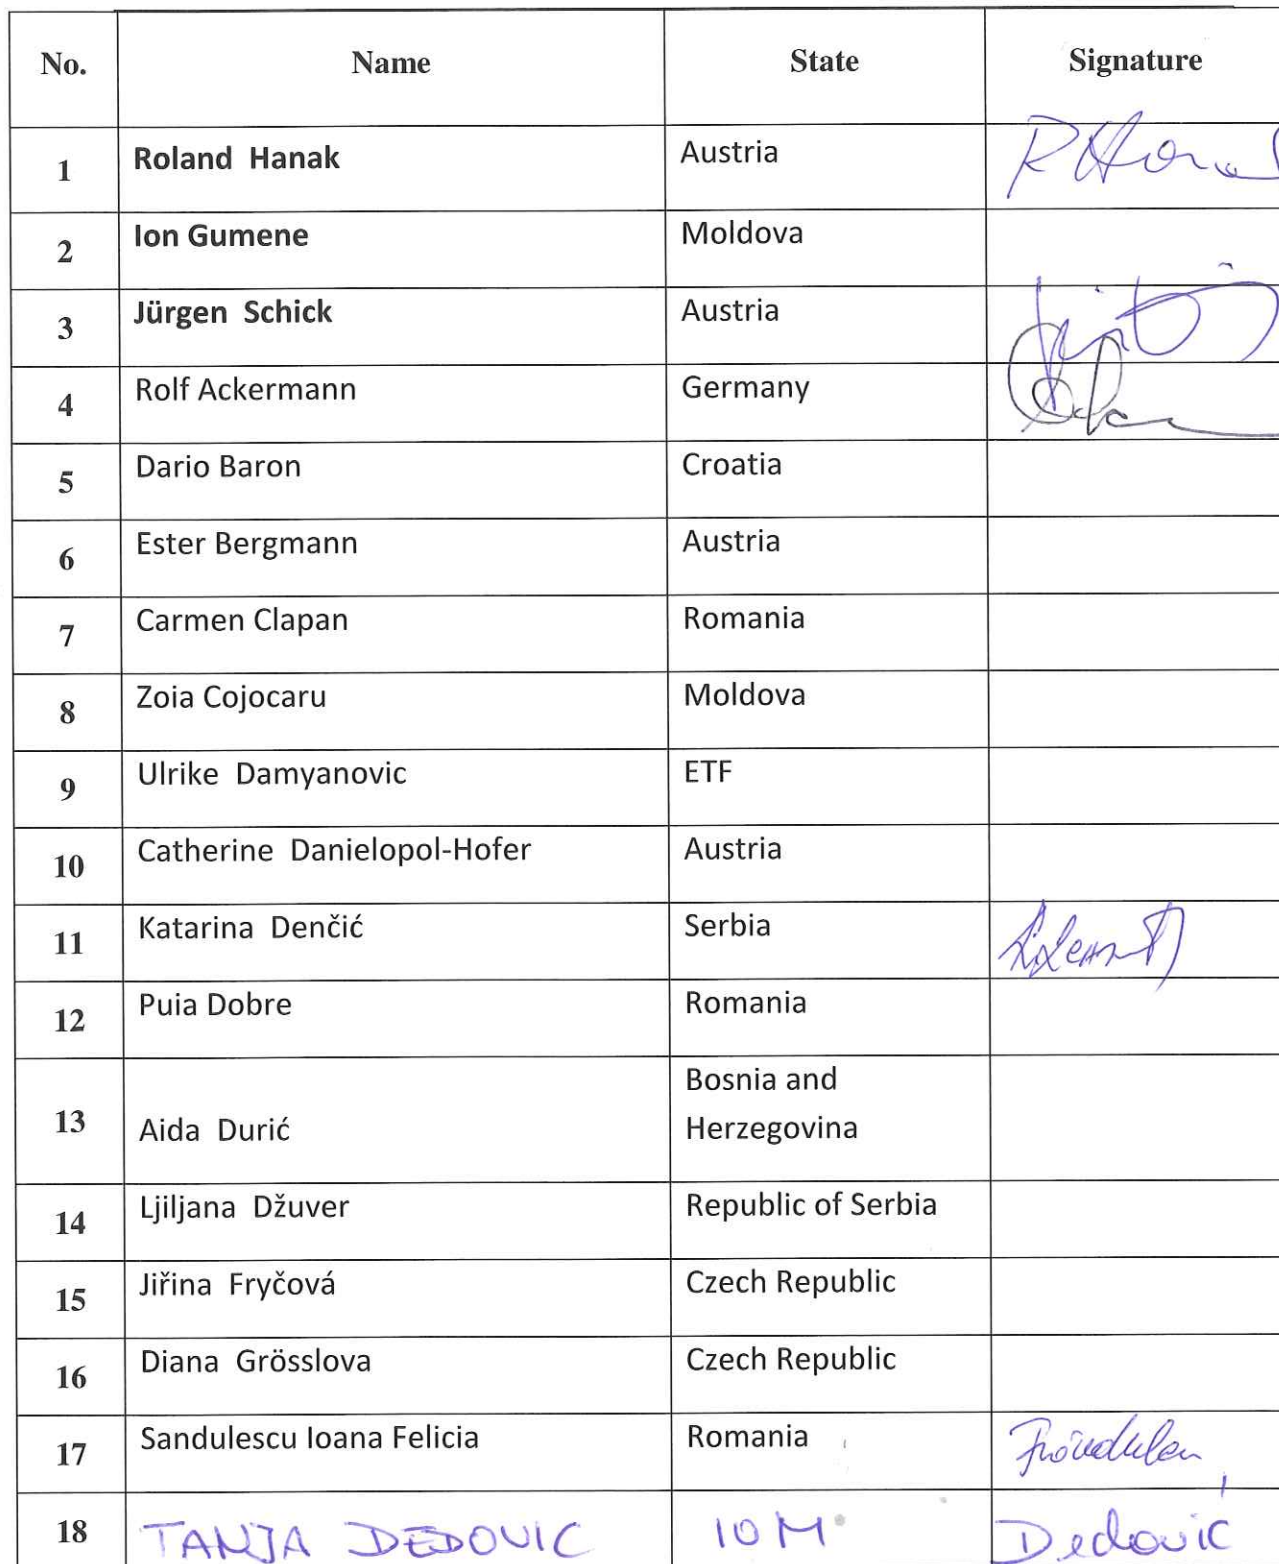 No. Name State Signature
1 Roland Hanak Austria
2 Ion Gumene Moldova
3 Jürgen Schick Austria
4 Rolf Ackermann Germany
5 Dario Baron Croatia
6 Ester Bergmann Austria
7 Carmen Clapan Romania
8 Zoia Cojocaru Moldova
9 Ulrike Damyanovic ETF
10 Catherine Danielopol-Hofer Austria
11 Katarina Denčić Serbia
12 Puia Dobre Romania
13 Aida Durić Bosnia and
Herzegovina
14 Ljiljana Džuver Republic of Serbia
15 Jiřina Fryčová Czech Republic
16 Diana Grösslova Czech Republic
17 Sandulescu Ioana Felicia Romania
18 TANJA DEDOVIC IOM Dedović